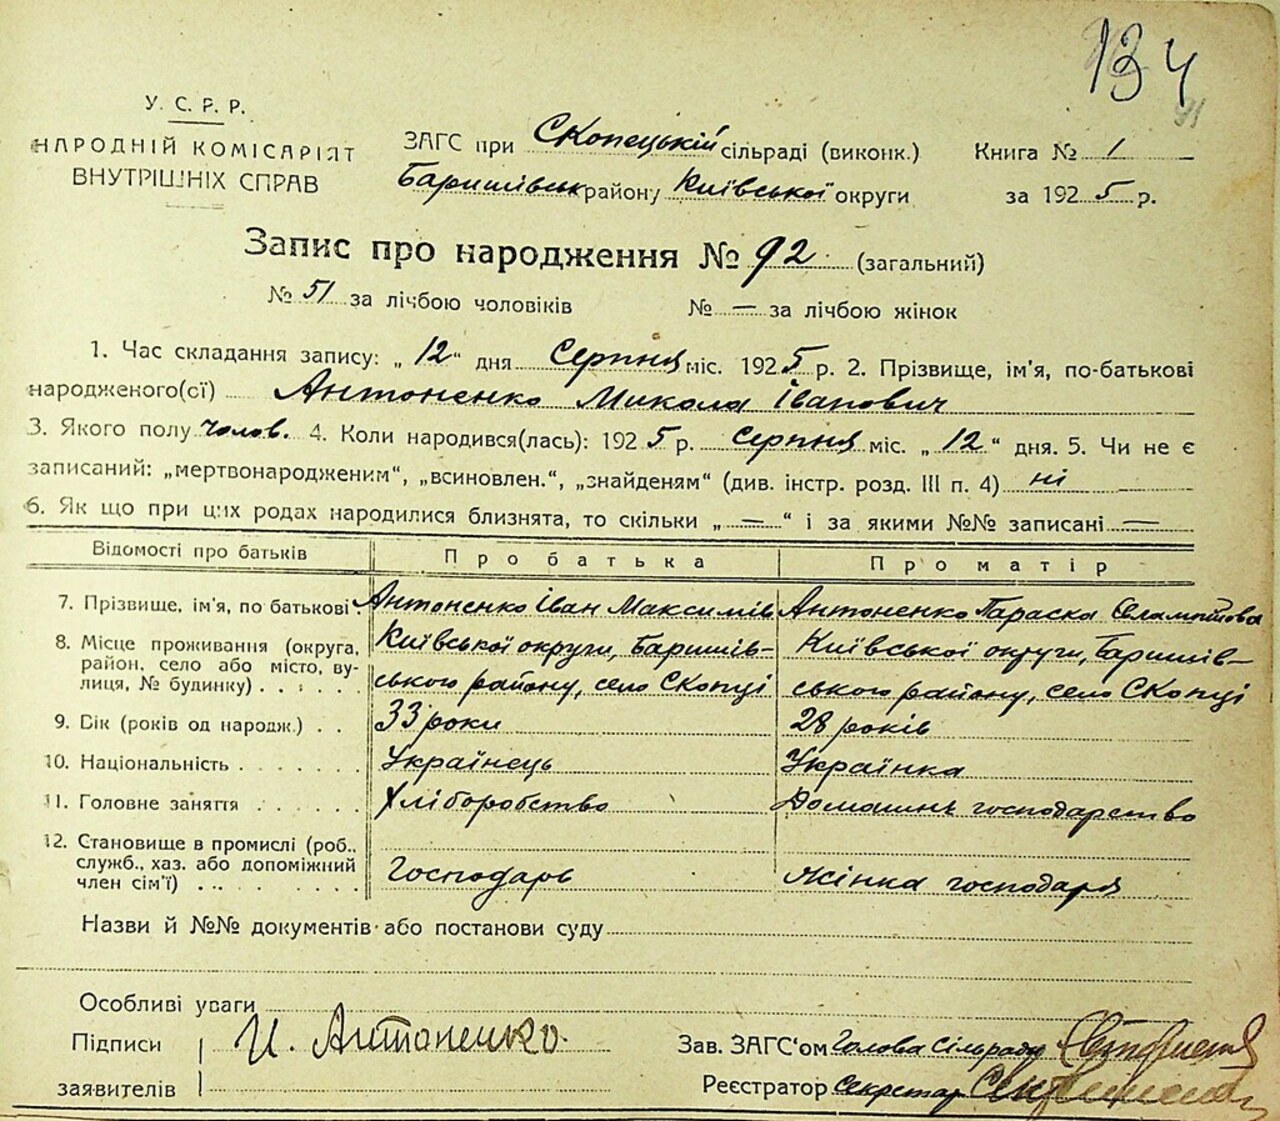 134
У. С. Р. Р.
НАРОДНІЙ КОМІСАРІЯТ
ВНУТРІШНІХ СПРАВ
ЗАГС при Скопецькій сільраді (виконк.)
Баришівськ району Київської округи
Книга № 1
за 1925 р.
Запис про народження № 92 (загальний)
№ 51 за лічбою чоловіків № — за лічбою жінок
1. Час складання запису: „ 12 “ дня Серпня міс. 1925 р. 2. Прізвище, ім'я, по-батькові
народженого(сї) Антоненко Микола Іванович
3. Якого полу чолов. 4. Коли народився(лась): 1925 р. Серпня міс. „ 12 “ дня. 5. Чи не є
записаний: „мертвонародженим“, „всиновлен.“, „знайденям“ (див. інстр. розд. III п. 4) ні
6. Як що при цих родах народилися близнята, то скільки „ — “ і за якими №№ записані —
Відомості про батьків Про батька Про матір
7. Прізвище, ім'я, по батькові Антоненко Іван Максимів Антоненко Параска
8. Місце проживання (округа, район, село або місто, вулиця, № будинку) Київської округи, Баришів-
ського району, село Скопці Київської округи, Баришів-
ського району, село Скопці
9. Вік (років од народж.) 33 роки 28 років
10. Національність Українець Українка
11. Головне заняття Хліборобство Домашнь господарство
12. Становище в промислі (роб.,
служб., хаз. або допоміжний
член сім'ї) Господарь жінка господаря
Назви й №№ документів або постанови суду
Особливі уваги
Підписи И. Антоненко.
заявителів
Зав. ЗАГС'ом Голова сільради
Реєстратор Секретар